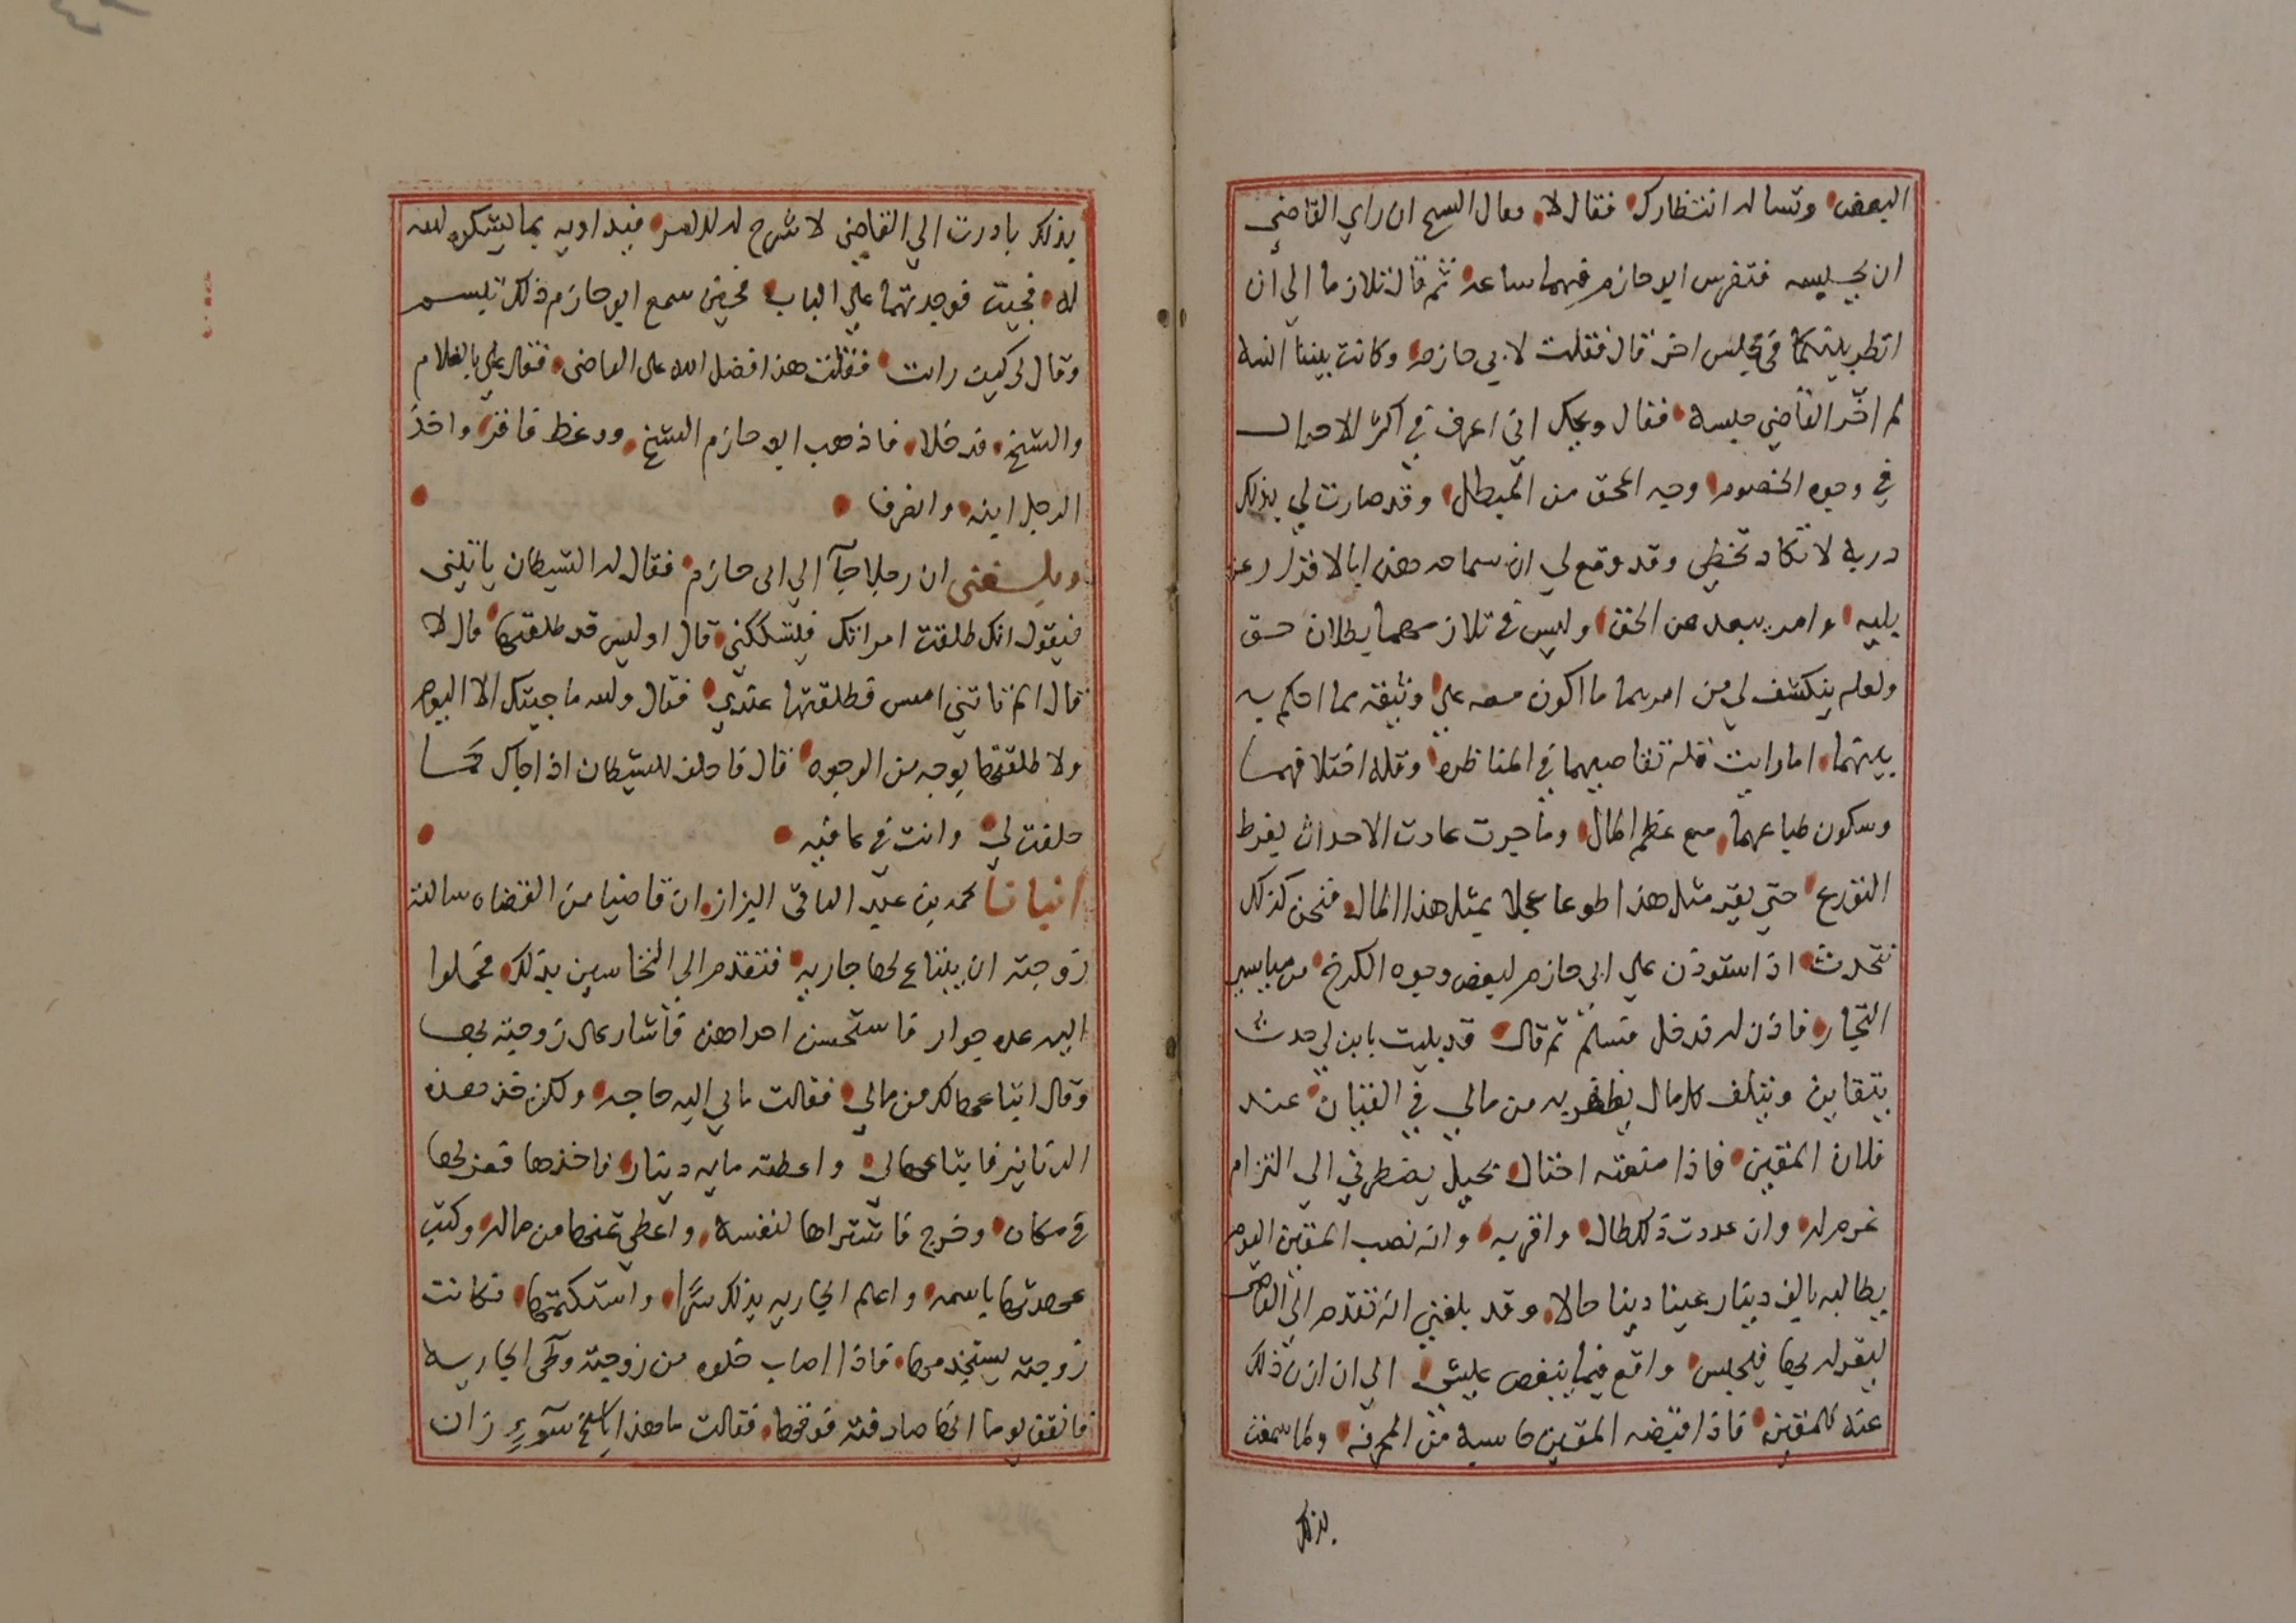 البعض وتساله انتظارك فقال لا وقال الشيخ ان راي القاضي
ان يحبسه فتفرس ابو حازم فيهما ساعه ثم قال تلازما الي ان
انظر بينكما في مجلس اخر قال فقلت لابي حازم وكانت بيننا انسه
لم اخّر القاضي حبسه فقال ويحك اني اعرف في اكثر الاحوال
في وجوه الخصوم وجه المحق من المبطل وقد صارت لي بذلك
دربه لا تكاد تخطي وقد وقع لي ان سماحه هذا بالاقرار عن
بليه وامر يبعد عن الحق وليس في تلازمهما بطلان حق
ولعله ينكشف لي من امرهما ما اكون معه علي وثيقه مما احكم به
بينهما اما رايت قله تغاضبهما في المناظره وقله اختلافهما
وسكون طباعهما مع عظم المال وما جرت عادت الاحداث بفرط
التورع حتي يقر مثل هذا طوعا عجلا بمثل هذا المال فنحن كذلك
نتحدث اذ استوذن علي ابي حازم لبعض وجوه الكرخ من مياسير
التجار فاذن له فدخل فسلم ثم قال قد بليت بابن لي حدث
يتقاين ويتلف كل مال يظفر به من مالي في القيان عند
فلان المقين فاذا منعته احتال بحيل يضطرني الي التزام
غرم له وان عددت ذلك طال واقربه وانه نصب المقين اليوم
يطالبه بالف دينار عينا دينا حالا وقد بلغني انه تقدم الي القاضي
ليقر له بها فيحبس واقع فيما ينغص عليشي الي ان ازن ذلك
عنه للمقين فاذا قبضه المقين حاسبه من المعرفه ولما سمعت
بذلك
بذلك بادرت الي القاضي لاشرح له الامر فيداويه بما يشكره الله
له فجيت فوجدتهما علي الباب فحين سمع ابو حازم ذلك تبسم
وقال لي كيف رايت فقلت هذا فضل الله علي القاضي فقال علي بالغلام
والشيخ فدخلا فاذهب ابو حازم الشيخ ووعظ فاقر واخذ
الرجل ابنه وانصرفا
وبلغني ان رجلا جآ الي ابي حازم فقال له الشيطان ياتيني
فيقول انك طلقت امراتك فيشككني قال اوليس قد طلقتها قال لا
قال الم تاتني امس فطلقتها عندي فقال والله ما جيتك الا اليوم
ولا طلقتها بوجه من الوجوه قال فاحلف للشيطان اذا جاك كما
حلفت لي وانت في عافيه
انبانا محمد بن عبد الباقي البزاز ان قاضيا من القضاه سالته
زوجته ان يبتاع لها جاريه فتقدم الي النخاسين بذلك فحملوا
اليه عده جوار فاستحسن احداهن فاشار علي زوجته بها
وقال ابتاعها لك من مالي فقالت مالي اليه حاجه ولكن خذ هذه
الدنانير فابتاعها لي واعطته مايه دينار فاخذها فعزلها
في مكان وخرج فاشتراها لنفسه واعطي ثمنها من ماله وكتب
عهدتها باسمه واعلم الجاريه بذلك سرّا واستكتمها فكانت
زوجته يستخدمها فاذا اصاب خلوه من زوجته وطي الجاريه
فاتفق يوما انها صادفته فوقها فقالت ما هذا يا شيخ سوءٍ زان